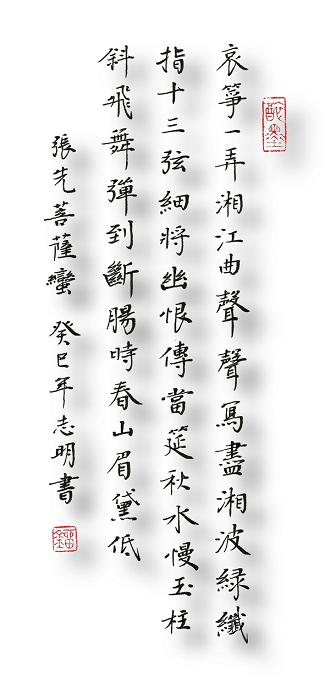 哀箏一弄湘江曲聲聲寫盡湘波綠纖
指十三弦細將幽恨傳當筵秋水慢玉柱
斜飛舞彈到斷腸時春山眉黛低
張先菩薩蠻 癸巳年志明書